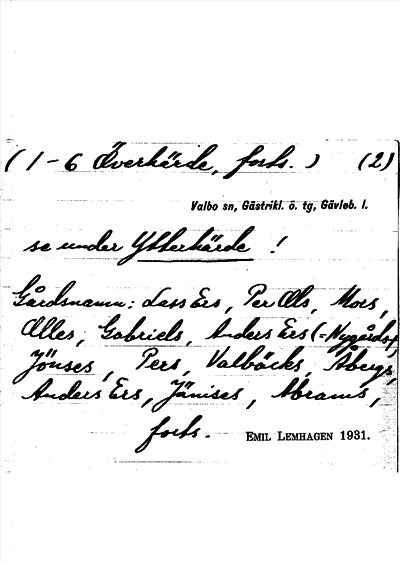 (1-6 Överhärde, forts.) (2)
Valbo sn, Gästrikl. ö. tg, Gävleb. l.
se under Ytterhärde !
Gårdsnamn: Lass Ers, Per Ols, Mors,
Olles, Gabriels, Anders Ers (=Nygårds),
Jönses, Pers, Valböcks, Åbergs,
Anders Ers, Jänises, Abrams,
forts.
EMIL LEMHAGEN 1931.